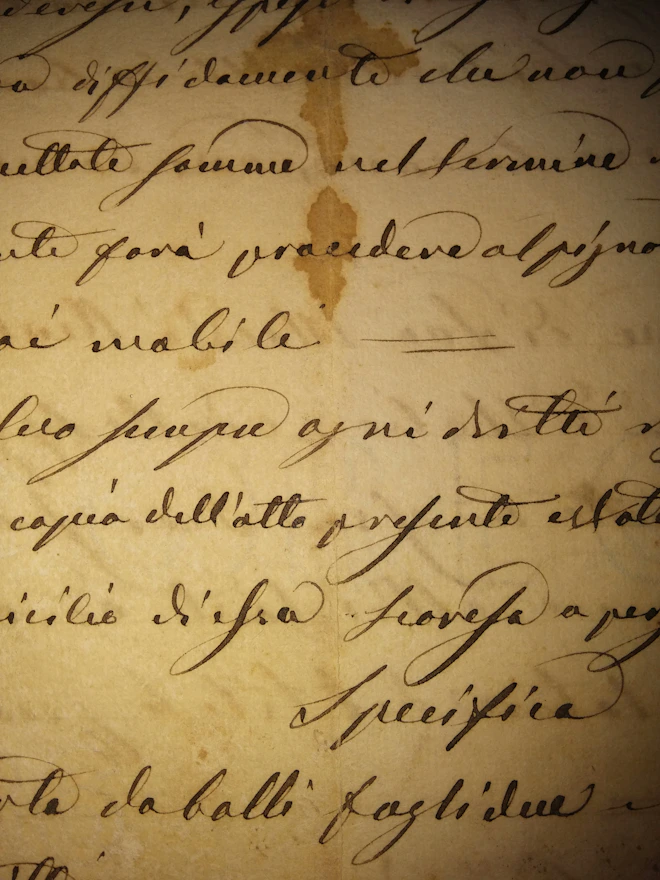 diffidamente che non
somme nel termine
farà procedere al pigno
mobili
sempre ogni dritto
copia dell'atto presente è stata
icilio di essa Scoresa a per
Specifica
rta da bolli fogli due